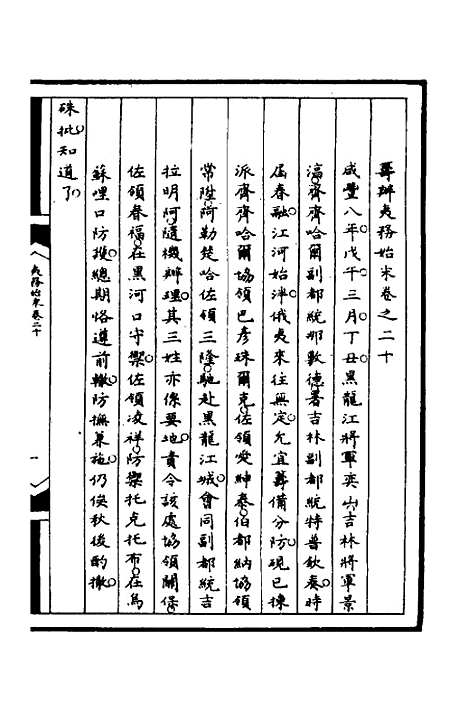 籌辦夷務始末卷之二十
咸豐八年戊午三月丁丑黑龍江將軍奕山吉林將軍景
淓齊齊哈爾副都統那敷德署吉林副都統特普欽奏時
屆春融江河始泮俄夷來往無定允宜籌備分防現已揀
派齊齊哈爾協領巴彥珠爾克佐領愛紳泰伯都納協領
常陞阿勒楚哈佐領三隆馳赴黑龍江城會同副都統吉
拉明阿隨機辦理其三姓亦係要地責令該處協領關保
佐領春福在黑河口守禦佐領凌祥防禦托克托布在烏
蘇哩口防撫總期恪遵前轍防撫兼施仍俟秋後酌撤
硃批知道了
夷務始末卷二十
一